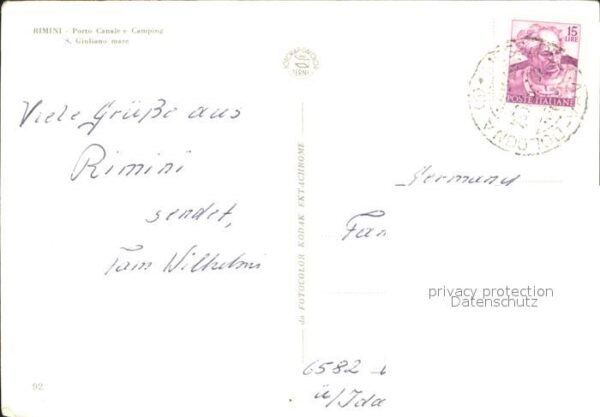 RIMINI - Porto Canale e Camping
S. Giuliano mare
15
LIRE
POSTE ITALIANE
Viele Grüße aus
Rimini
sendet,
Fam Wilhelmi
da FOTOCOLOR KODAK EKTACHROME
Germany
Fam
privacy protection
Datenschutz
6582
ü/Ida
92